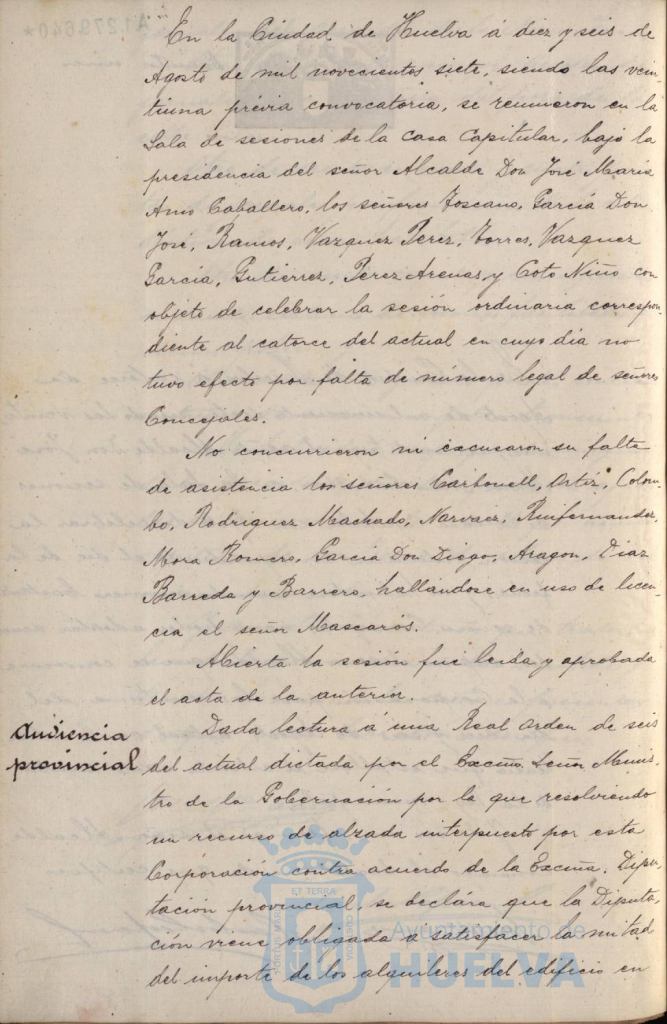 En la Ciudad de Huelva á diez y seis de
Agosto de mil novecientos siete, siendo las vein
tiuna prévia convocatoria, se reunieron en la
Sala de sesiones de la casa Capitular, bajo la
presidencia del señor Alcalde Don José María
Amo Caballero, los señores Toscano, García Don
José, Ramos, Vazquez Perez, Torres, Vazquez
García, Gutierrez, Perez Arenas, y Coto Niño con
objeto de celebrar la sesión ordinaria correspon-
diente al catorce del actual en cuyo dia no
tuvo efecto por falta de número legal de señores
Concejales.
No concurrieron ni excusaron su falta
de asistencia los señores Carbonell, Ortiz, Colom-
bo, Rodriguez Machado, Narvaez, Ruifernandez,
Mora Romero, García Don Diego, Aragon, Diaz
Barreda y Barrero, hallándose en uso de licen-
cia el señor Mascarós.
Abierta la sesión fué leida y aprobada
el acta de la anterior.
Audiencia
provincial
Dada lectura á una Real orden de seis
del actual dictada por el Excmo. Señor Minis-
tro de la Gobernación por la que resolviendo
un recurso de alzada interpuesto por esta
Corporación contra acuerdo de la Excma. Dipu-
tación provincial, se declára que la Diputa-
ción viene obligada á satisfacer la mitad
del importe de los alquileres del edificio en
PORTUS MARIS ET TERRÆ CUSTODIA
Ayuntamiento de
HUELVA